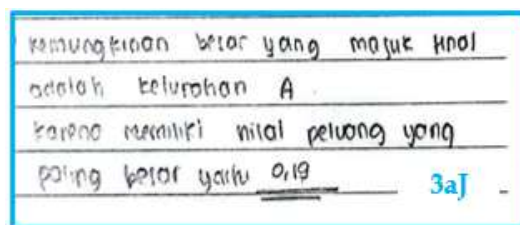 kemungkinan besar yang masuk final
adalah kelurahan A.
karena memiliki nilai peluang yang
paling besar yaitu 0,19
3aJ